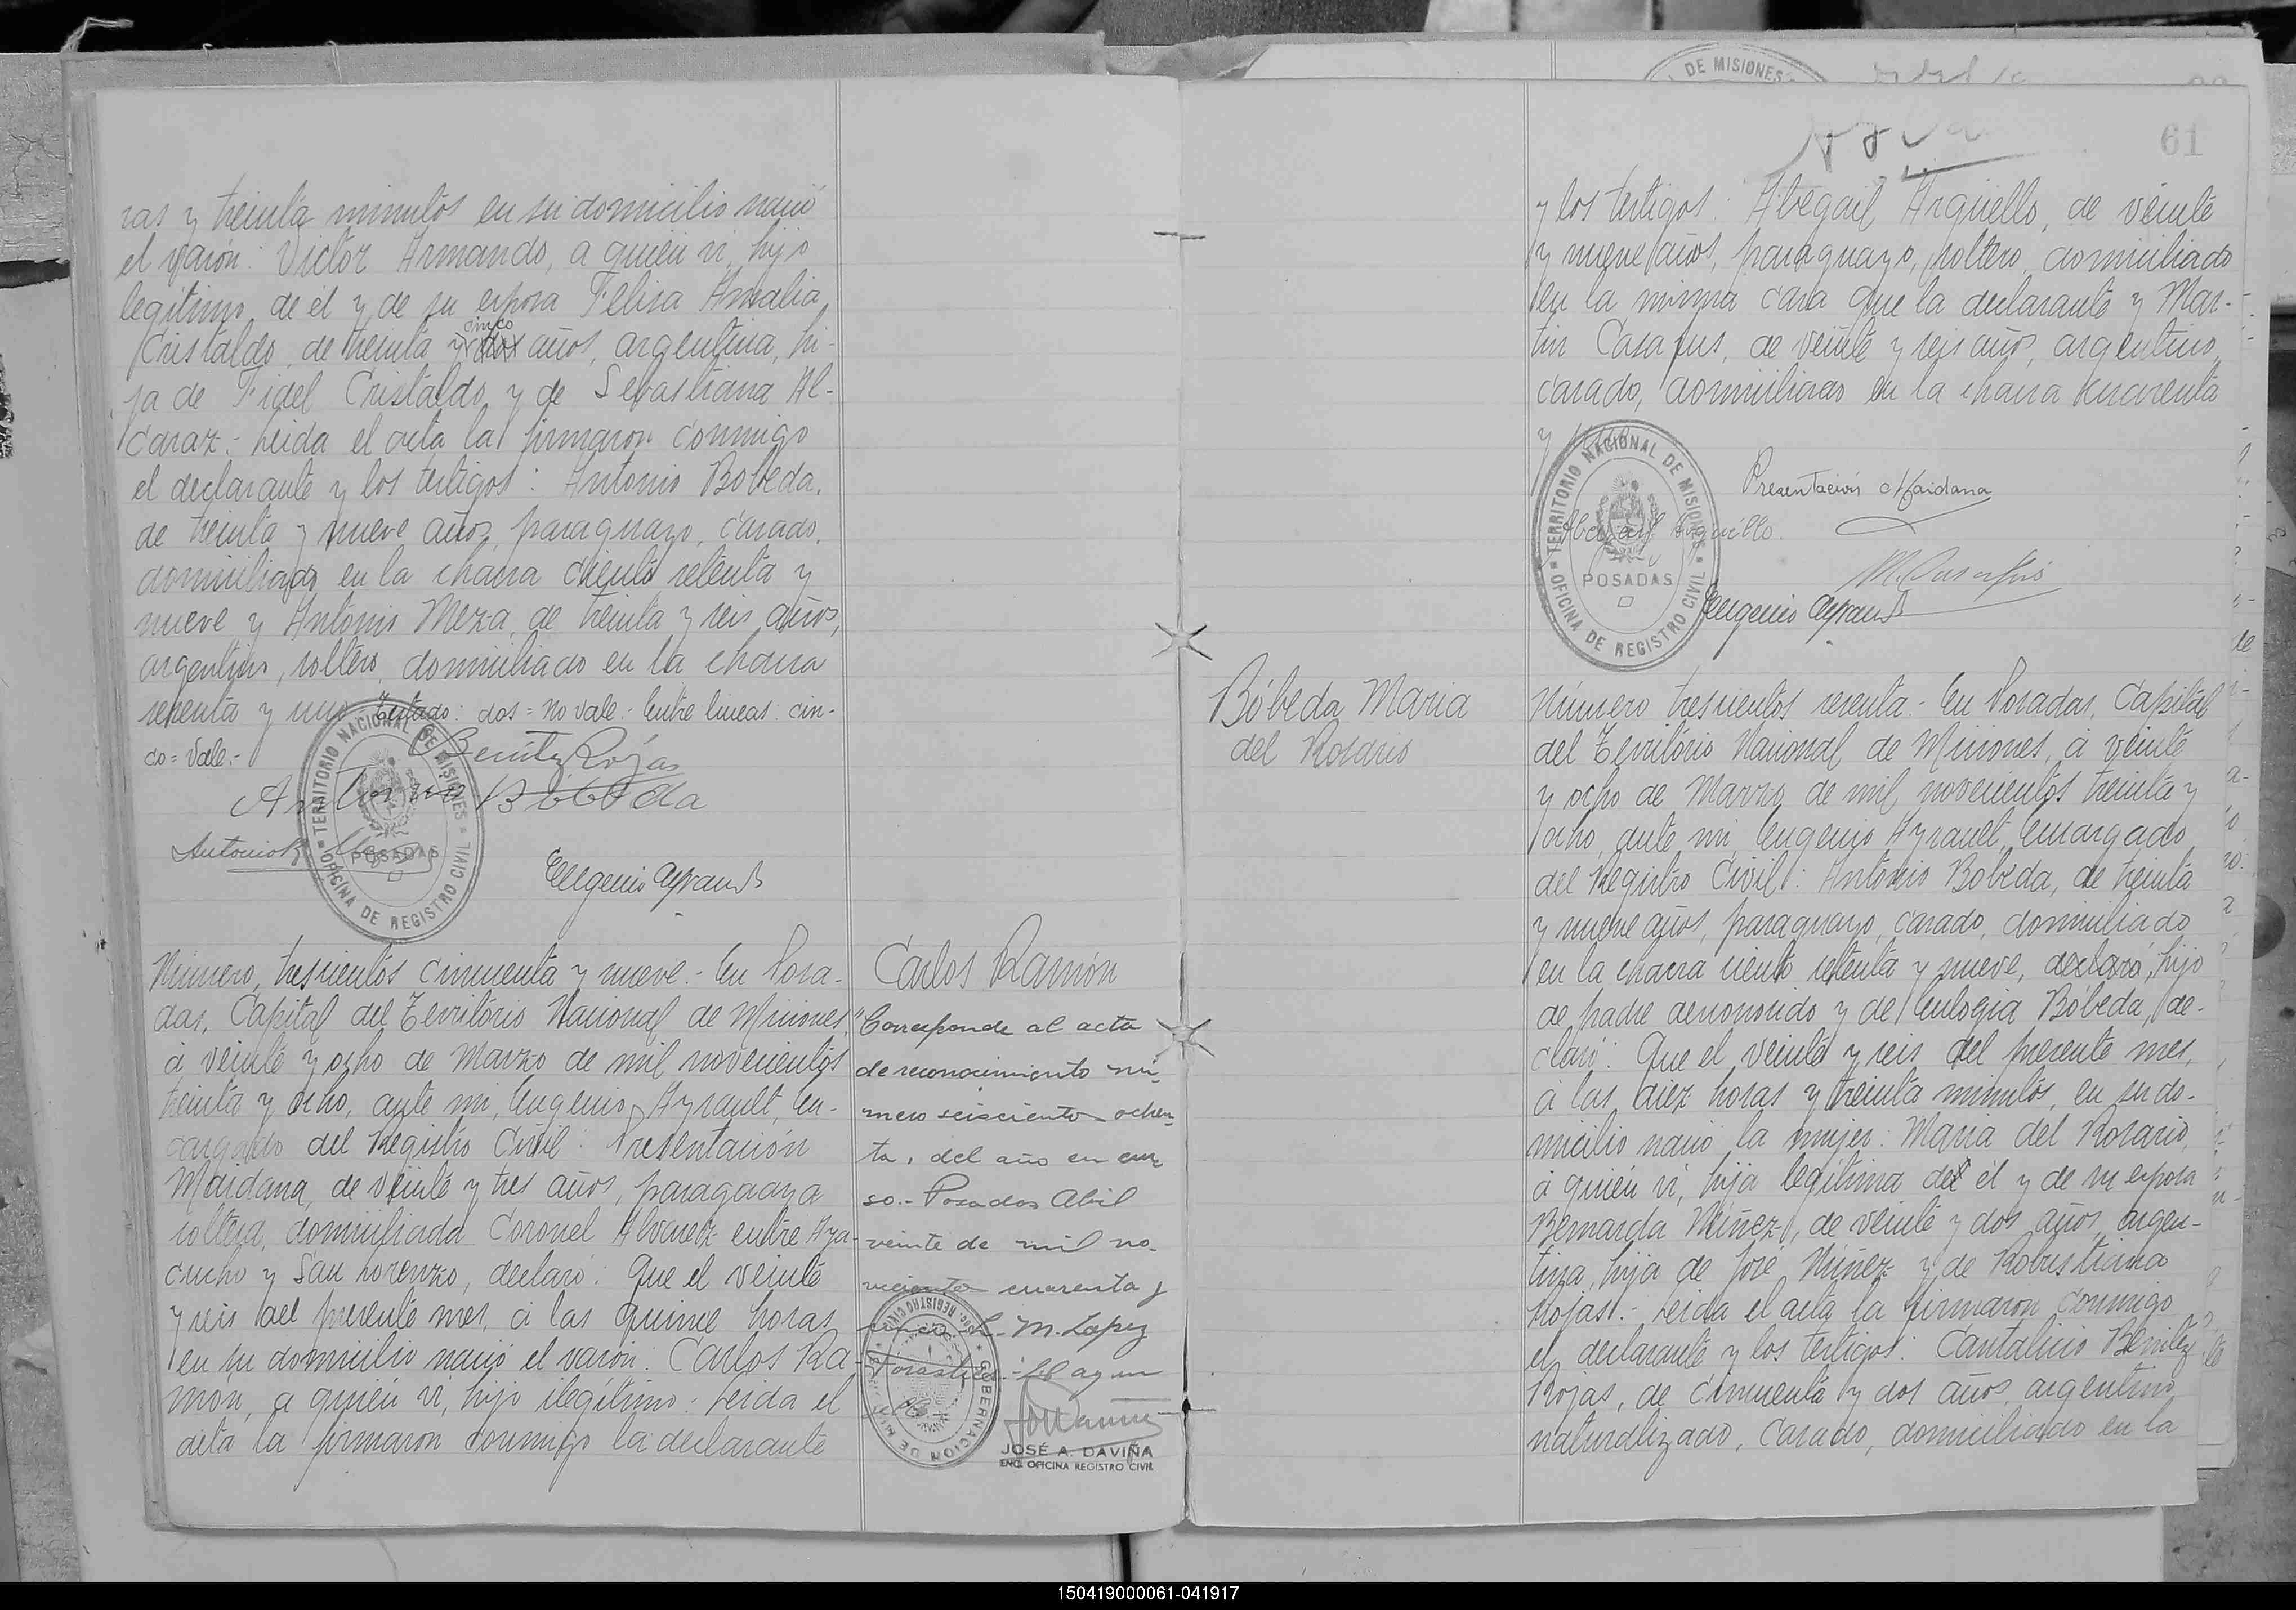 ras y treinta minutos en su domicilio nació
el varón: Victor Armando, a quién vi, hijo
legítimo de él y de su esposa Felisa Amalia
Cristaldo, de treinta y dos cinco años, argentina, hi-
ja de Fidel Cristaldo y de Sebastiana Al-
caraz.- Leida el acta la firmaron conmigo
el declarante y los testigos: Antonio Bobeda,
de treinta y nueve años, paraguayo, casado,
domiciliado en la chacra ciento setenta y
nueve y Antonio Meza, de treinta y seis años,
argentino, soltero, domiciliado en la chacra
sesenta y uno.- Testado: dos = no vale.- Entre lineas: cin-
co = Vale.-
Benitez Rojas
Antonio Bóbeda
Antonio
TERRITORIO NACIONAL DE MISIONES
POSADAS
OFICINA DE REGISTRO CIVIL
Eugenio Ayrault
Número, trescientos cincuenta y nueve.- En Posa-
das, Capital del Territorio Nacional de Misiones,
á veinte y ocho de Marzo de mil novecientos
treinta y ocho, ante mi, Eugenio Ayrault, En-
cargado del Registro Civil: Presentación
Maidana, de veinte y tres años, paraguaya
soltera, domiciliada Coronel Alvarez entre Aya-
cucho y San Lorenzo, declaró: Que el veinte
y seis del presente mes, á las quince horas
en su domicilio nació el varón: Carlos Ra-
món, a quién vi, hijo ilegítimo.- Leida el
acta la firmaron conmigo la declarante
Carlos Ramón
"Corresponde al acta
de reconocimiento nú-
mero seiscientos ochen-
ta, del año en cur-
so.- Posadas Abril
veinte de mil no-
vecientos cuarenta y
L. M. Lopez
Forastieri
JOSÉ A. DAVIÑA
ENC. OFICINA REGISTRO CIVIL
DE MISIONES
61
y los testigos: Abegail Arguello, de veinte
y nueve años, paraguayo, soltero, domiciliado
en la misma casa que la declarante y Mar-
tin Casafus, de veinte y seis años, argentino,
casado, domiciliado en la chacra cincuenta
y
TERRITORIO NACIONAL DE MISIONES
POSADAS
OFICINA DE REGISTRO CIVIL
Presentación Maidana
Abegail Arguello
M. Casafus
Eugenio Ayrault
Bóbeda Maria
del Rosario
Número trescientos sesenta.- En Posadas, Capital
del Territorio Nacional de Misiones, á veinte
y ocho de Marzo de mil novecientos treinta y
ocho, ante mi, Eugenio Ayrault, Encargado
del Registro Civil: Antonio Bobeda, de treinta
y nueve años, paraguayo, casado, domiciliado
en la chacra ciento setenta y nueve, declaró, hijo
de padre desconocido y de Eulogia Bóbeda, de-
claró: Que el veinte y seis del presente mes,
á las diez horas y treinta minutos, en su do-
micilio nació la mujer: Maria del Rosario,
á quién vi, hija legítima de él y de su esposa
Bernarda Núñez, de veinte y dos años, argen-
tina, hija de José Núñez y de Robustiana
Rojas.- Leida el acta la firmaron conmigo
el declarante y los testigos: Cantalicio Benitez
Rojas, de cincuenta y dos años, argentino
naturalizado, casado, domiciliado en la
150419000061-041917